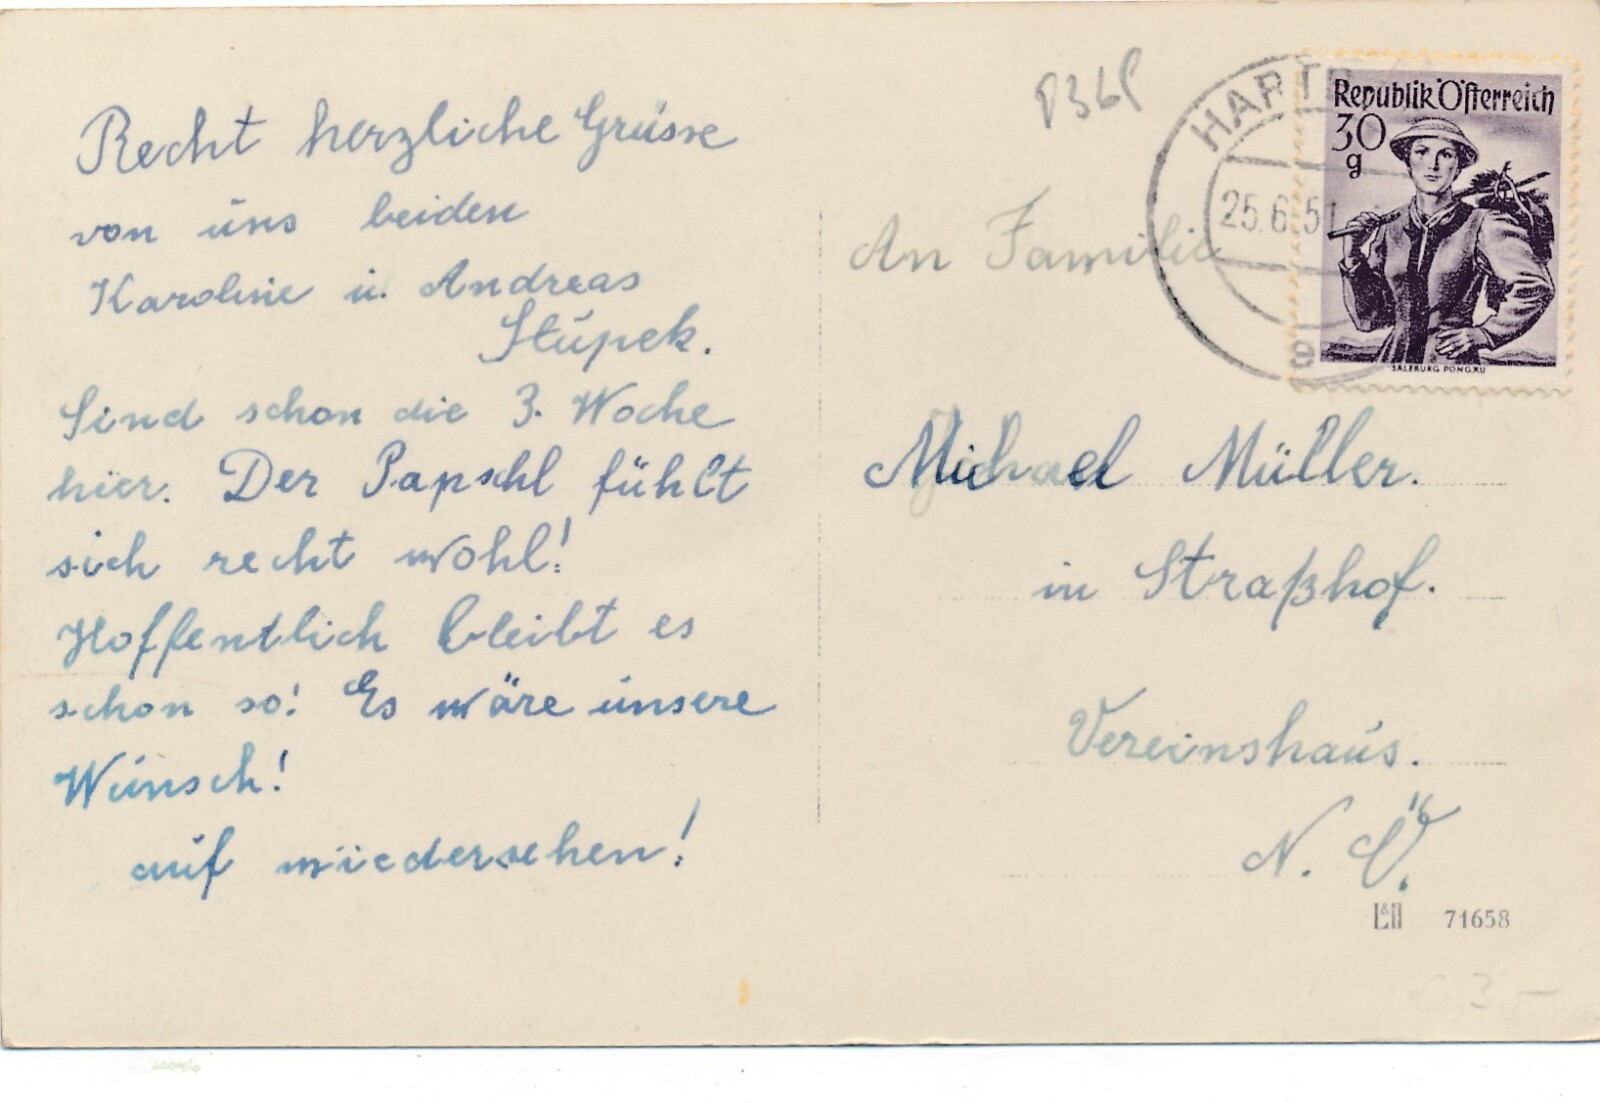 Recht herzliche Grüsse
von uns beiden
Karoline u. Andreas
Stupek.
Sind schon die 3. Woche
hier. Der Papschl fühlt
sich recht wohl!
Hoffentlich bleibt es
schon so! Es wäre unsere
Wunsch!
auf wiedersehen!
P36P
HART
25.6.51
Republik Österreich
30
g
SALZBURG PONGAU
An Familie
Michael Müller.
in Straßhof.
Vereinshaus.
N. Ö.
71658
3 —